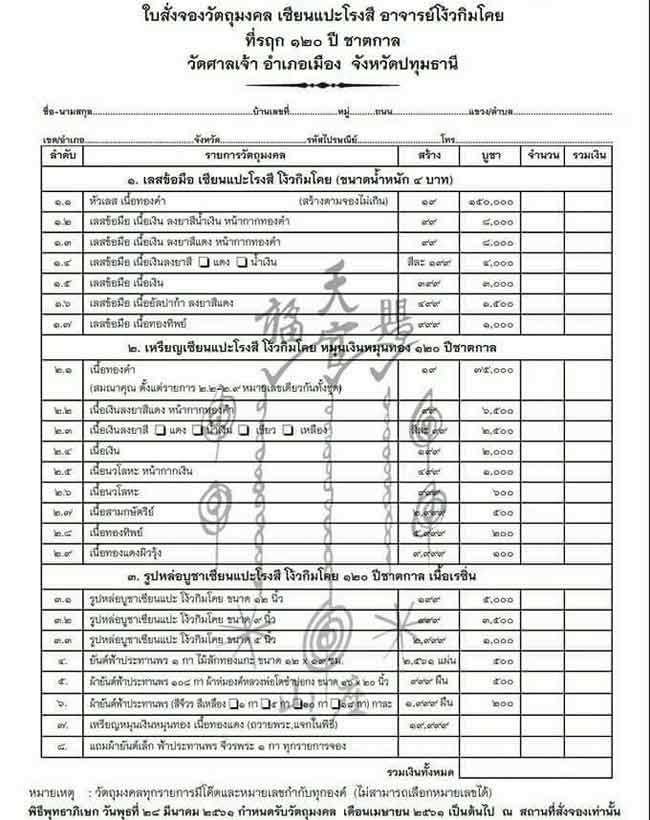 ใบสั่งจองวัตถุมงคล เซียนแปะโรงสี อาจารย์โง้วกิมโคย
ที่รฤก ๑๒๐ ปี ชาตกาล
วัดศาลเจ้า อำเภอเมือง จังหวัดปทุมธานี
ชื่อ-นามสกุล บ้านเลขที่ หมู่ ถนน แขวง/ตำบล
เขต/อำเภอ จังหวัด รหัสไปรษณีย์ โทร
ลำดับ รายการวัตถุมงคล สร้าง บูชา จำนวน รวมเงิน
๑. เลสข้อมือ เซียนแปะโรงสี โง้วกิมโคย (ขนาดน้ำหนัก ๔ บาท)
๑.๑ หัวเลส เนื้อทองคำ (สร้างตามจองไม่เกิน) ๑๙ ๑๕๐,๐๐๐
๑.๒ เลสข้อมือ เนื้อเงิน ลงยาสีน้ำเงิน หน้ากากทองคำ ๙๙ ๘,๐๐๐
๑.๓ เลสข้อมือ เนื้อเงิน ลงยาสีแดง หน้ากากทองคำ ๙๙ ๘,๐๐๐
๑.๔ เลสข้อมือ เนื้อเงินลงยาสี แดง น้ำเงิน สีละ ๑๙๙ ๔,๐๐๐
๑.๕ เลสข้อมือ เนื้อเงิน ๓๙๙ ๓,๐๐๐
๑.๖ เลสข้อมือ เนื้ออัลปาก้า ลงยาสีแดง ๔๙๙ ๑,๕๐๐
๑.๗ เลสข้อมือ เนื้อทองทิพย์ ๙๙๙ ๑,๐๐๐
๒. เหรียญเซียนแปะโรงสี โง้วกิมโคย หมุนเงินหมุนทอง ๑๒๐ ปีชาตกาล
๒.๑ เนื้อทองคำ ๑๙ ๗๕,๐๐๐
(สมณาคุณ ตั้งแต่รายการ ๒.๒-๒.๙ หมายเลขเดียวกันทั้งชุด)
๒.๒ เนื้อเงินลงยาสีแดง หน้ากากทองคำ ๙๙ ๖,๕๐๐
๒.๓ เนื้อเงินลงยาสี แดง น้ำเงิน เขียว เหลือง สีละ ๙๙ ๒,๕๐๐
๒.๔ เนื้อเงิน ๑๙๙ ๒,๐๐๐
๒.๕ เนื้อนวโลหะ หน้ากากเงิน ๔๙๙ ๑,๐๐๐
๒.๖ เนื้อนวโลหะ ๙๙๙ ๖๐๐
๒.๗ เนื้อสามกษัตริย์ ๒,๙๙๙ ๕๐๐
๒.๘ เนื้อทองทิพย์ ๕,๙๙๙ ๒๐๐
๒.๙ เนื้อทองแดงผิวรุ้ง ๙,๙๙๙ ๑๐๐
๓. รูปหล่อบูชาเซียนแปะโรงสี โง้วกิมโคย ๑๒๐ ปีชาตกาล เนื้อเรซิ่น
๓.๑ รูปหล่อบูชาเซียนแปะ โง้วกิมโคย ขนาด ๑๒ นิ้ว ๑๙๙ ๕,๐๐๐
๓.๒ รูปหล่อบูชาเซียนแปะ โง้วกิมโคย ขนาด ๙ นิ้ว ๙๙๙ ๓,๕๐๐
๓.๓ รูปหล่อบูชาเซียนแปะ โง้วกิมโคย ขนาด ๕ นิ้ว ๒,๙๙๙ ๑,๐๐๐
๔. ยันต์ฟ้าประทานพร ๑ กา ไม้สักทองแกะ ขนาด ๑๒ x ๑๙ ซม. ๒,๕๖๑ แผ่น ๕๐๐
๕. ผ้ายันต์ฟ้าประทานพร ๑๐๘ กา ผ้าห่มองค์หลวงพ่อโตซำปอกง ขนาด ๑๖ x ๒๐ นิ้ว ๙๙๙ ผืน ๕๐๐
๖. ผ้ายันต์ฟ้าประทานพร (สีจีวร สีเหลือง ๑ กา ๕ กา ๑๐ กา ๑๘ กา) กาละ ๑,๙๙๙ ผืน ๒๐๐
๗. เหรียญหมุนเงินหมุนทอง เนื้อทองแดง (ถวายพระ,แจกในพิธี) ๑๙,๙๙๙
๘. แถมผ้ายันต์เล็ก ฟ้าประทานพร จีวรพระ ๑ กา ทุกรายการจอง
รวมเงินทั้งหมด
หมายเหตุ : วัตถุมงคลทุกรายการมีโค๊ดและหมายเลขกำกับทุกองค์ (ไม่สามารถเลือกหมายเลขได้)
พิธีพุทธาภิเษก วันพุธที่ ๒๘ มีนาคม ๒๕๖๑ กำหนดรับวัตถุมงคล เดือนเมษายน ๒๕๖๑ เป็นต้นไป ณ สถานที่สั่งจองเท่านั้น